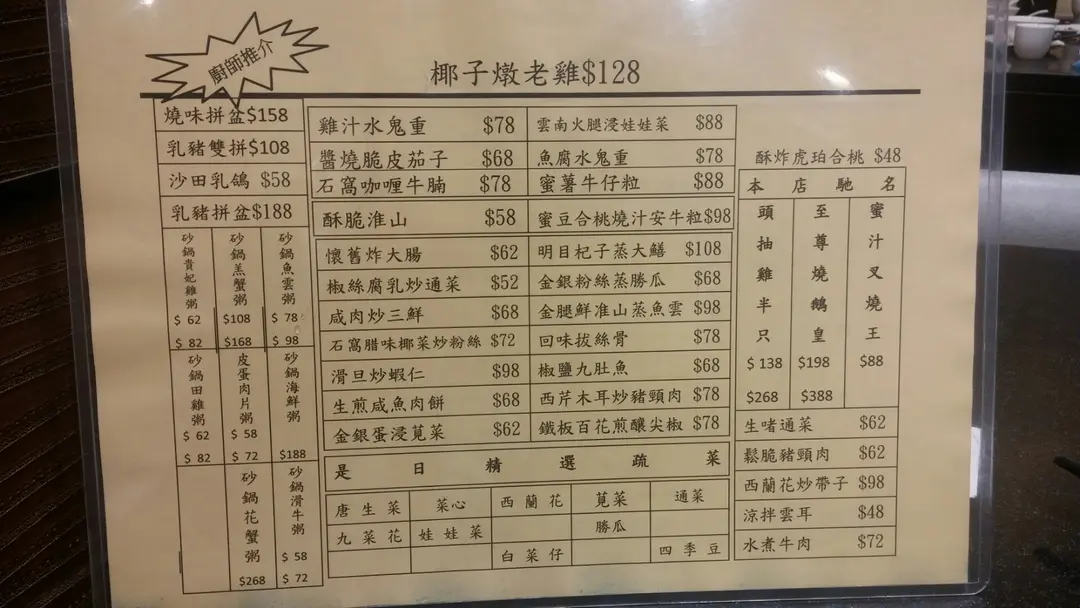 廚師推介
椰子燉老雞$128
燒味拼盆$158
乳豬雙拼$108
沙田乳鴿 $58
乳豬拼盆$188
雞汁水鬼重 $78
雲南火腿浸娃娃菜 $88
醬燒脆皮茄子 $68
魚腐水鬼重 $78
石窩咖喱牛腩 $78
蜜薯牛仔粒 $88
酥脆淮山 $58
蜜豆合桃燒汁安牛粒$98
懷舊炸大腸 $62
明目杞子蒸大鱔 $108
椒絲腐乳炒通菜 $52
金銀粉絲蒸勝瓜 $68
咸肉炒三鮮 $68
金腿鮮准山蒸魚雲 $98
石窩腊味椰菜炒粉絲 $72
回味拔絲骨 $78
滑旦炒蝦仁 $98
椒鹽九肚魚 $68
生煎咸魚肉餅 $68
西芹木耳炒豬頸肉 $78
金銀蛋浸莧菜 $62
鐵板百花煎釀尖椒 $78
砂鍋貴妃雞粥
$ 62
$ 82
砂鍋羔蟹粥
$108
$168
砂鍋魚雲粥
$ 78
$ 98
砂鍋田雞粥
$ 62
$ 82
皮蛋肉片粥
$ 58
$ 72
砂鍋海鮮粥
$188
砂鍋花蟹粥
$268
砂鍋滑牛粥
$ 58
$ 72
是日精選疏菜
唐生菜 菜心 西蘭花 莧菜 通菜
九菜花 娃娃菜 勝瓜
白菜仔 四季豆
酥炸虎珀合桃 $48
本店馳名
頭抽雞半只
$ 138
$268
至尊燒鵝皇
$198
$388
蜜汁叉燒王
$88
生啫通菜 $62
鬆脆豬頸肉 $62
西蘭花炒帶子 $98
涼拌雲耳 $48
水煮牛肉 $72